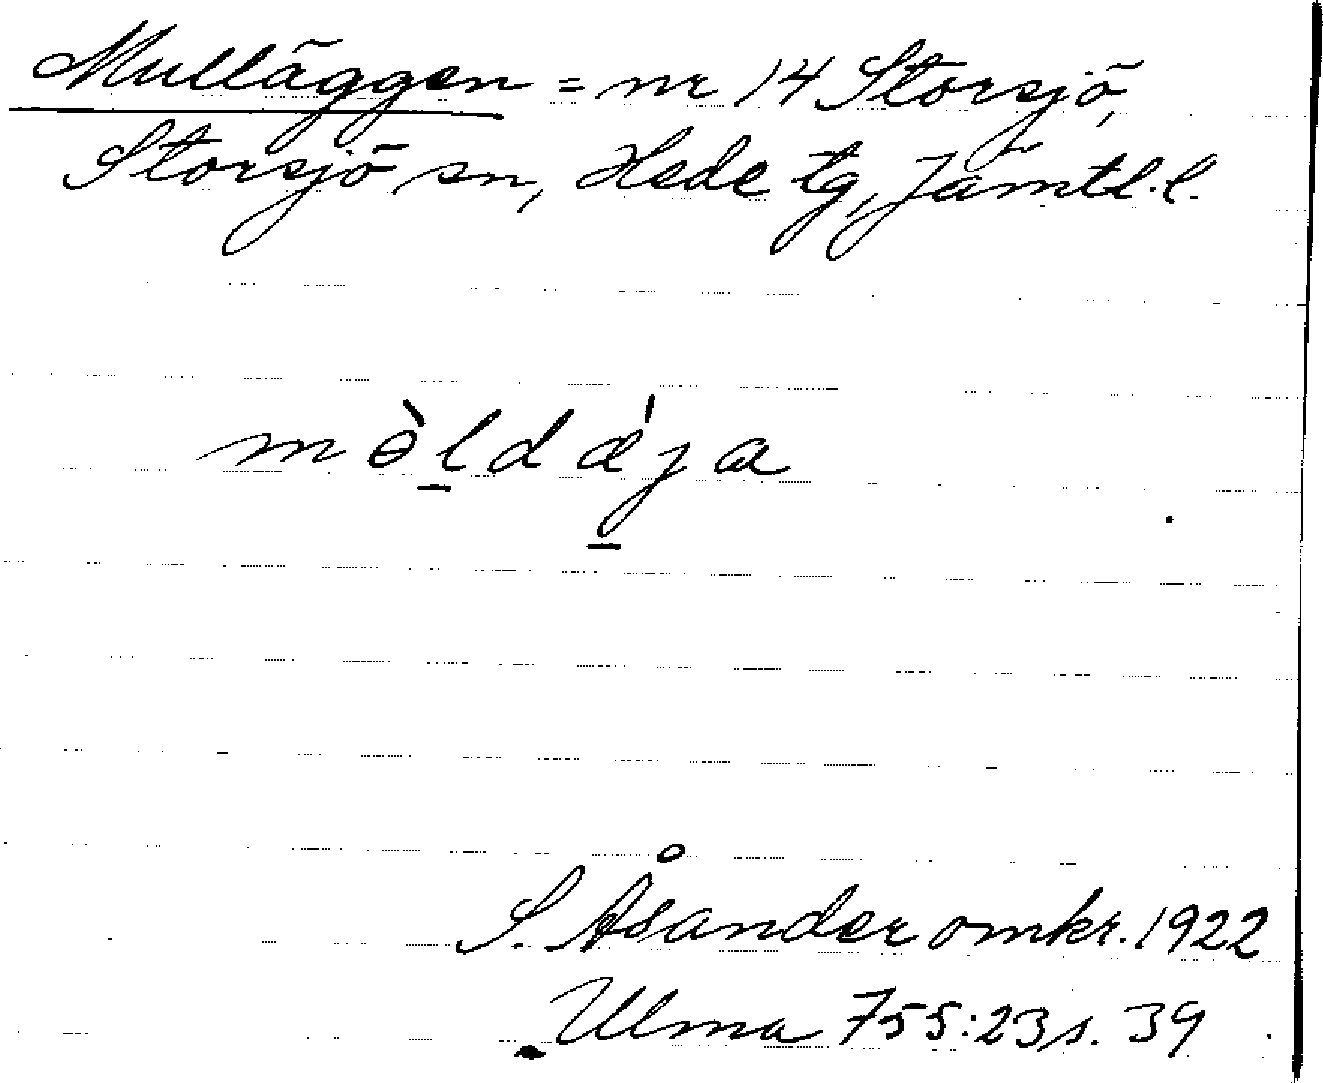 Mulläggen = nr 14 Storsjö,
Storsjö sn, Hede tg, Jämtl.l.
mɵ̀l̠dǽj̠a
S. Åsander omkr. 1922
Ulma 755:23 s. 39